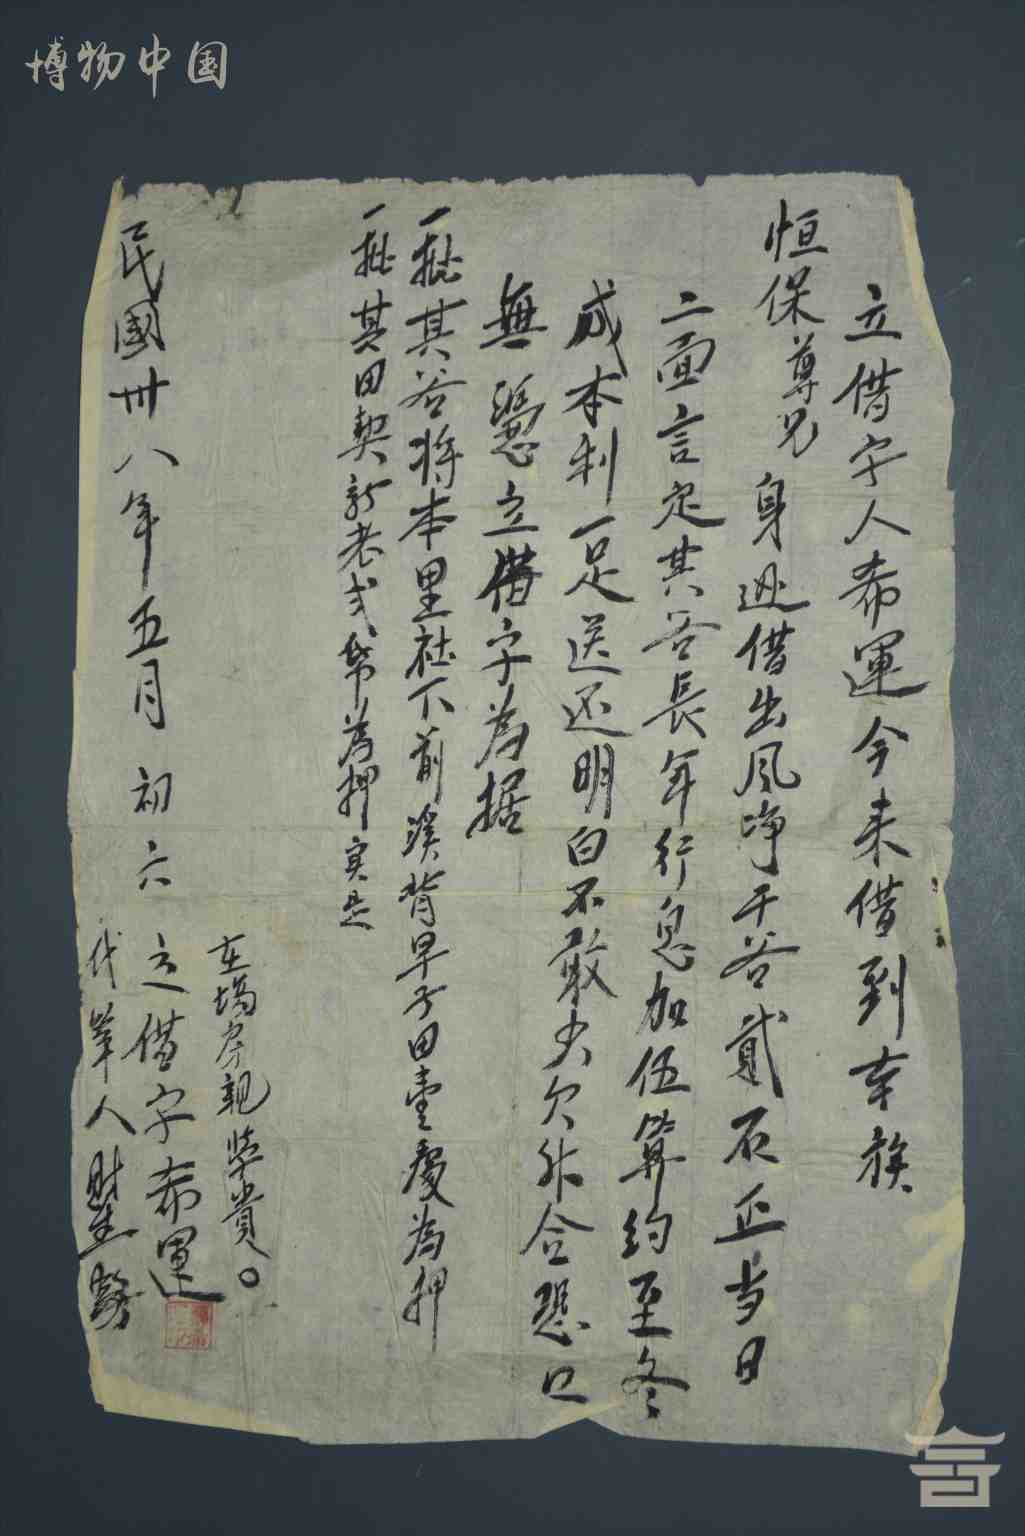 博物中国
立借字人希運今来借到本族
恒保尊兄 身边借出風净干谷貳石正当日
二面言定其谷長年行息加伍算约至冬
成本利一足送还明白不敢少欠外合恐口
無憑立借字為据
一批其谷将本里社下前溪背早子田壹處為押
一批其田契新老弍帋為押实是
在塲房親 貴〇
民國卅八年五月初六 立借字希運
代筆人